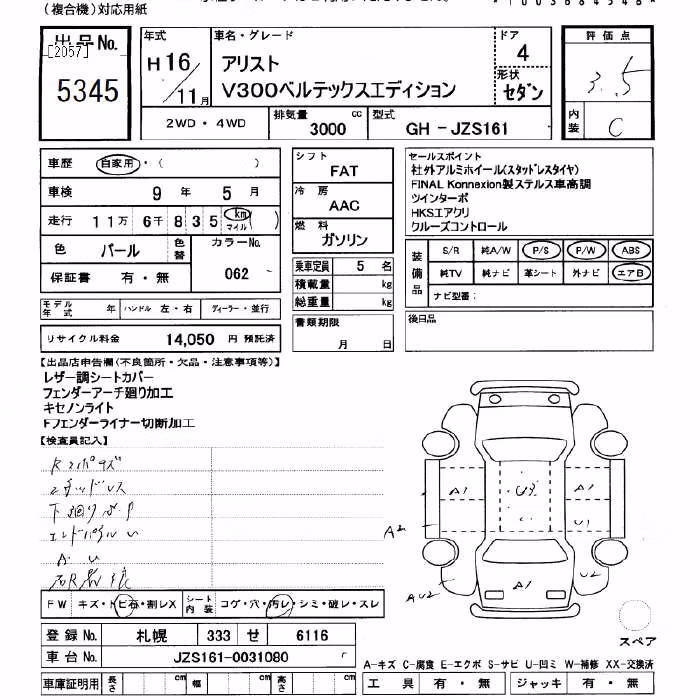 (複合機)対応用紙
出品No.
[2057]
5345
年式
H16/11月
車名・グレード
アリスト
V300ベルテックスエディション
ドア
4
形状
セダン
評価点
3.5
内装
C
2WD・4WD
排気量
3000 cc
型式
GH-JZS161
車歴 自家用・( )
車検 9年 5月
走行 11万 6千 835 km マイル
色 パール
色替
カラーNo.
062
保証書 有・無
モデル年式 年
ハンドル 左・右
ディーラー・並行
リサイクル料金 14,050 円 預託済
シフト
FAT
冷房
AAC
燃料
ガソリン
乗車定員 5 名
積載量 kg
総重量 kg
書類期限
月 日
セールスポイント
社外アルミホイール(スタッドレスタイヤ)
FINAL Konnexion製ステルス車高調
ツインターボ
HKSエアクリ
クルーズコントロール
装備品
S/R 純A/W P/S P/W ABS
純TV 純ナビ 革シート 外ナビ エアB
ナビ型番:
後日品
【出品店申告欄(不良箇所・欠品・注意事項等)】
レザー調シートカバー
フェンダーアーチ廻り加工
キセノンライト
Fフェンダーライナー切断加工
【検査員記入】
スタッドレス
下廻り
A U
FW キズ・トビ石・割レX
シート内装 コゲ・穴・汚レ・シミ・破レ・スレ
A1
U3
A1
A2
U1
A1
U2
AU2
スペア
登録No. 札幌 333 せ 6116
車台No. JZS161-0031080
車庫証明用 長さ cm 幅 cm 高さ cm
A-キズ C-腐食 E-エクボ S-サビ U-凹ミ W-補修 XX-交換済
工具 有・無 ジャッキ 有・無